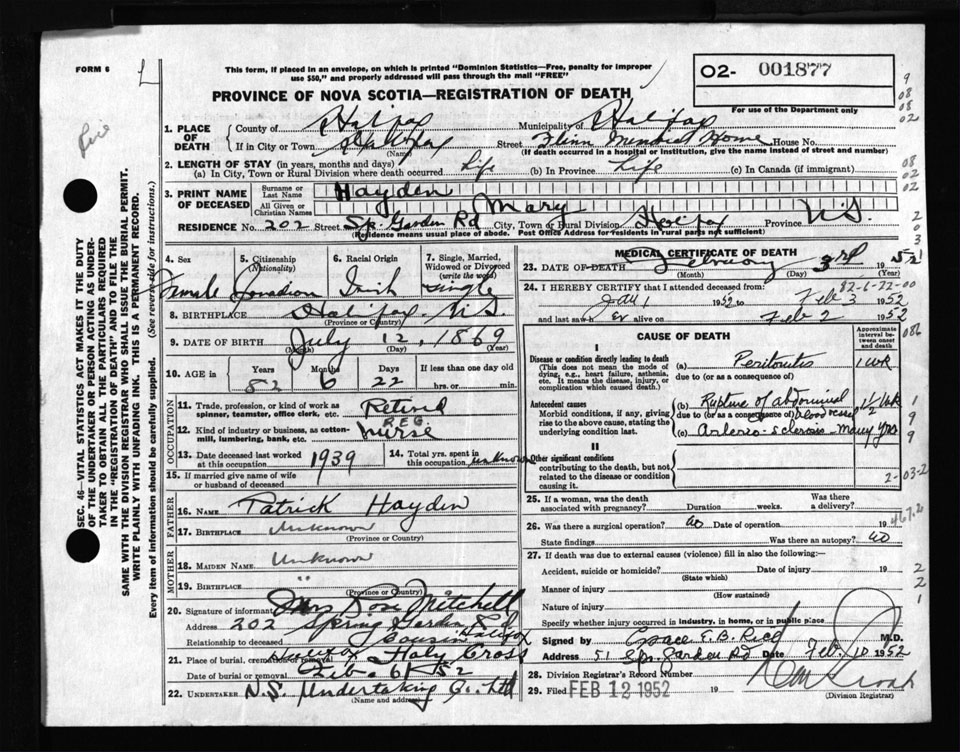 FORM 6
L
This form, if placed in an envelope, on which is printed "Dominion Statistics—Free, penalty for improper
use $50," and properly addressed will pass through the mail "FREE"
02- 001877
PROVINCE OF NOVA SCOTIA—REGISTRATION OF DEATH
For use of the Department only
1. PLACE OF DEATH
County of Halifax Municipality of Halifax
If in City or Town Halifax Street Home House No.
(Name) (If death occurred in a hospital or institution, give the name instead of street and number)
2. LENGTH OF STAY (in years, months and days)
(a) In City, Town or Rural Division where death occurred Life (b) In Province Life (c) In Canada (if immigrant)
3. PRINT NAME OF DECEASED
Surname or Last Name Hayden
All Given or Christian Names Mary
RESIDENCE No. 202 Street Sp. Garden Rd City, Town or Rural Division Halifax Province N.S.
(Residence means usual place of abode. Post Office Address for residents in rural parts not sufficient)
SEC. 46—VITAL STATISTICS ACT MAKES IT THE DUTY
OF THE UNDERTAKER OR PERSON ACTING AS UNDER-
TAKER TO OBTAIN ALL THE PARTICULARS REQUIRED
IN THE "REGISTRATION OF DEATH" AND TO FILE THE
SAME WITH THE DIVISION REGISTRAR WHO SHALL ISSUE THE BURIAL PERMIT.
WRITE PLAINLY WITH UNFADING INK. THIS IS A PERMANENT RECORD.
Every item of information should be carefully supplied. (See reverse side for instructions.)
4. Sex
Female
5. Citizenship
(Nationality)
Canadian
6. Racial Origin
Irish
7. Single, Married,
Widowed or Divorced
(write the word)
Single
8. BIRTHPLACE Halifax, N.S.
(Province or Country)
9. DATE OF BIRTH July 12, 1869
(Month) (Day) (Year)
10. AGE in
Years Months Days If less than one day old
82 6 22 hrs. or min.
OCCUPATION
11. Trade, profession, or kind of work as
spinner, teamster, office clerk, etc. Retired
12. Kind of industry or business, as cotton-
mill, lumbering, bank, etc. REG. Nurse
13. Date deceased last worked
at this occupation 1939
14. Total yrs. spent in
this occupation unknown
15. If married give name of wife
or husband of deceased
FATHER
16. Name Patrick Hayden
17. Birthplace Unknown
(Province or Country)
MOTHER
18. Maiden Name Unknown
19. Birthplace "
(Province or Country)
20. Signature of informant Mrs Rose Mitchell
Address 202 Spring Garden Rd Halifax
Relationship to deceased Cousin
21. Place of burial, cremation or removal Halifax Holy Cross
Date of burial or removal Feb. 6/52
22. UNDERTAKER N.S. Undertaking Co. Ltd
(Name and address)
MEDICAL CERTIFICATE OF DEATH
23. DATE OF DEATH February 3rd 1952
(Month) (Day) (Year)
82-6-22-00
24. I HEREBY CERTIFY that I attended deceased from:
Jan 1 1952 to Feb 3 1952
and last saw h er alive on Feb 2 1952
CAUSE OF DEATH
Approximate
interval between
onset
and death
I
Disease or condition directly leading to death
(This does not mean the mode of
dying, e.g., heart failure, asthenia,
etc. It means the disease, injury, or
complication which caused death.)
(a) Peritonitis 1 wk
due to (or as a consequence of)
Antecedent causes
Morbid conditions, if any, giving
rise to the above cause, stating the
underlying condition last.
(b) Rupture of abdominal blood vessel 1½ wk
due to (or as a consequence of)
(c) Arterio-sclerosis - many yrs
II
Other significant conditions
contributing to the death, but not
related to the disease or condition
causing it.
25. If a woman, was the death
associated with pregnancy? Duration weeks. Was there a delivery?
26. Was there a surgical operation? no Date of operation 19
State findings Was there an autopsy? no
27. If death was due to external causes (violence) fill in also the following:—
Accident, suicide or homicide? Date of injury 19
(State which)
Manner of injury
(How sustained)
Nature of injury
Specify whether injury occurred in industry, in home, or in public place
Signed by Grace E.B. Rice M.D.
Address 51 Spr. Garden Rd Date Feb. 10 1952
28. Division Registrar's Record Number
29. Filed FEB 12 1952 19
(Division Registrar)